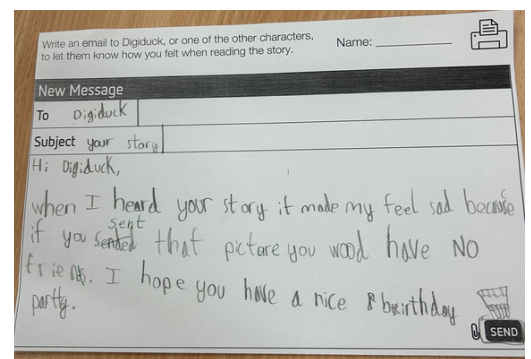 Write an email to Digiduck, or one of the other characters,
to let them know how you felt when reading the story.
Name:
New Message
To Digiduck
Subject your story
Hi Digiduck,
when I heard your story it made my feel sad because
sent
if you sended that picture you wood have NO
friends. I hope you have a nice birthday
partty.
SEND